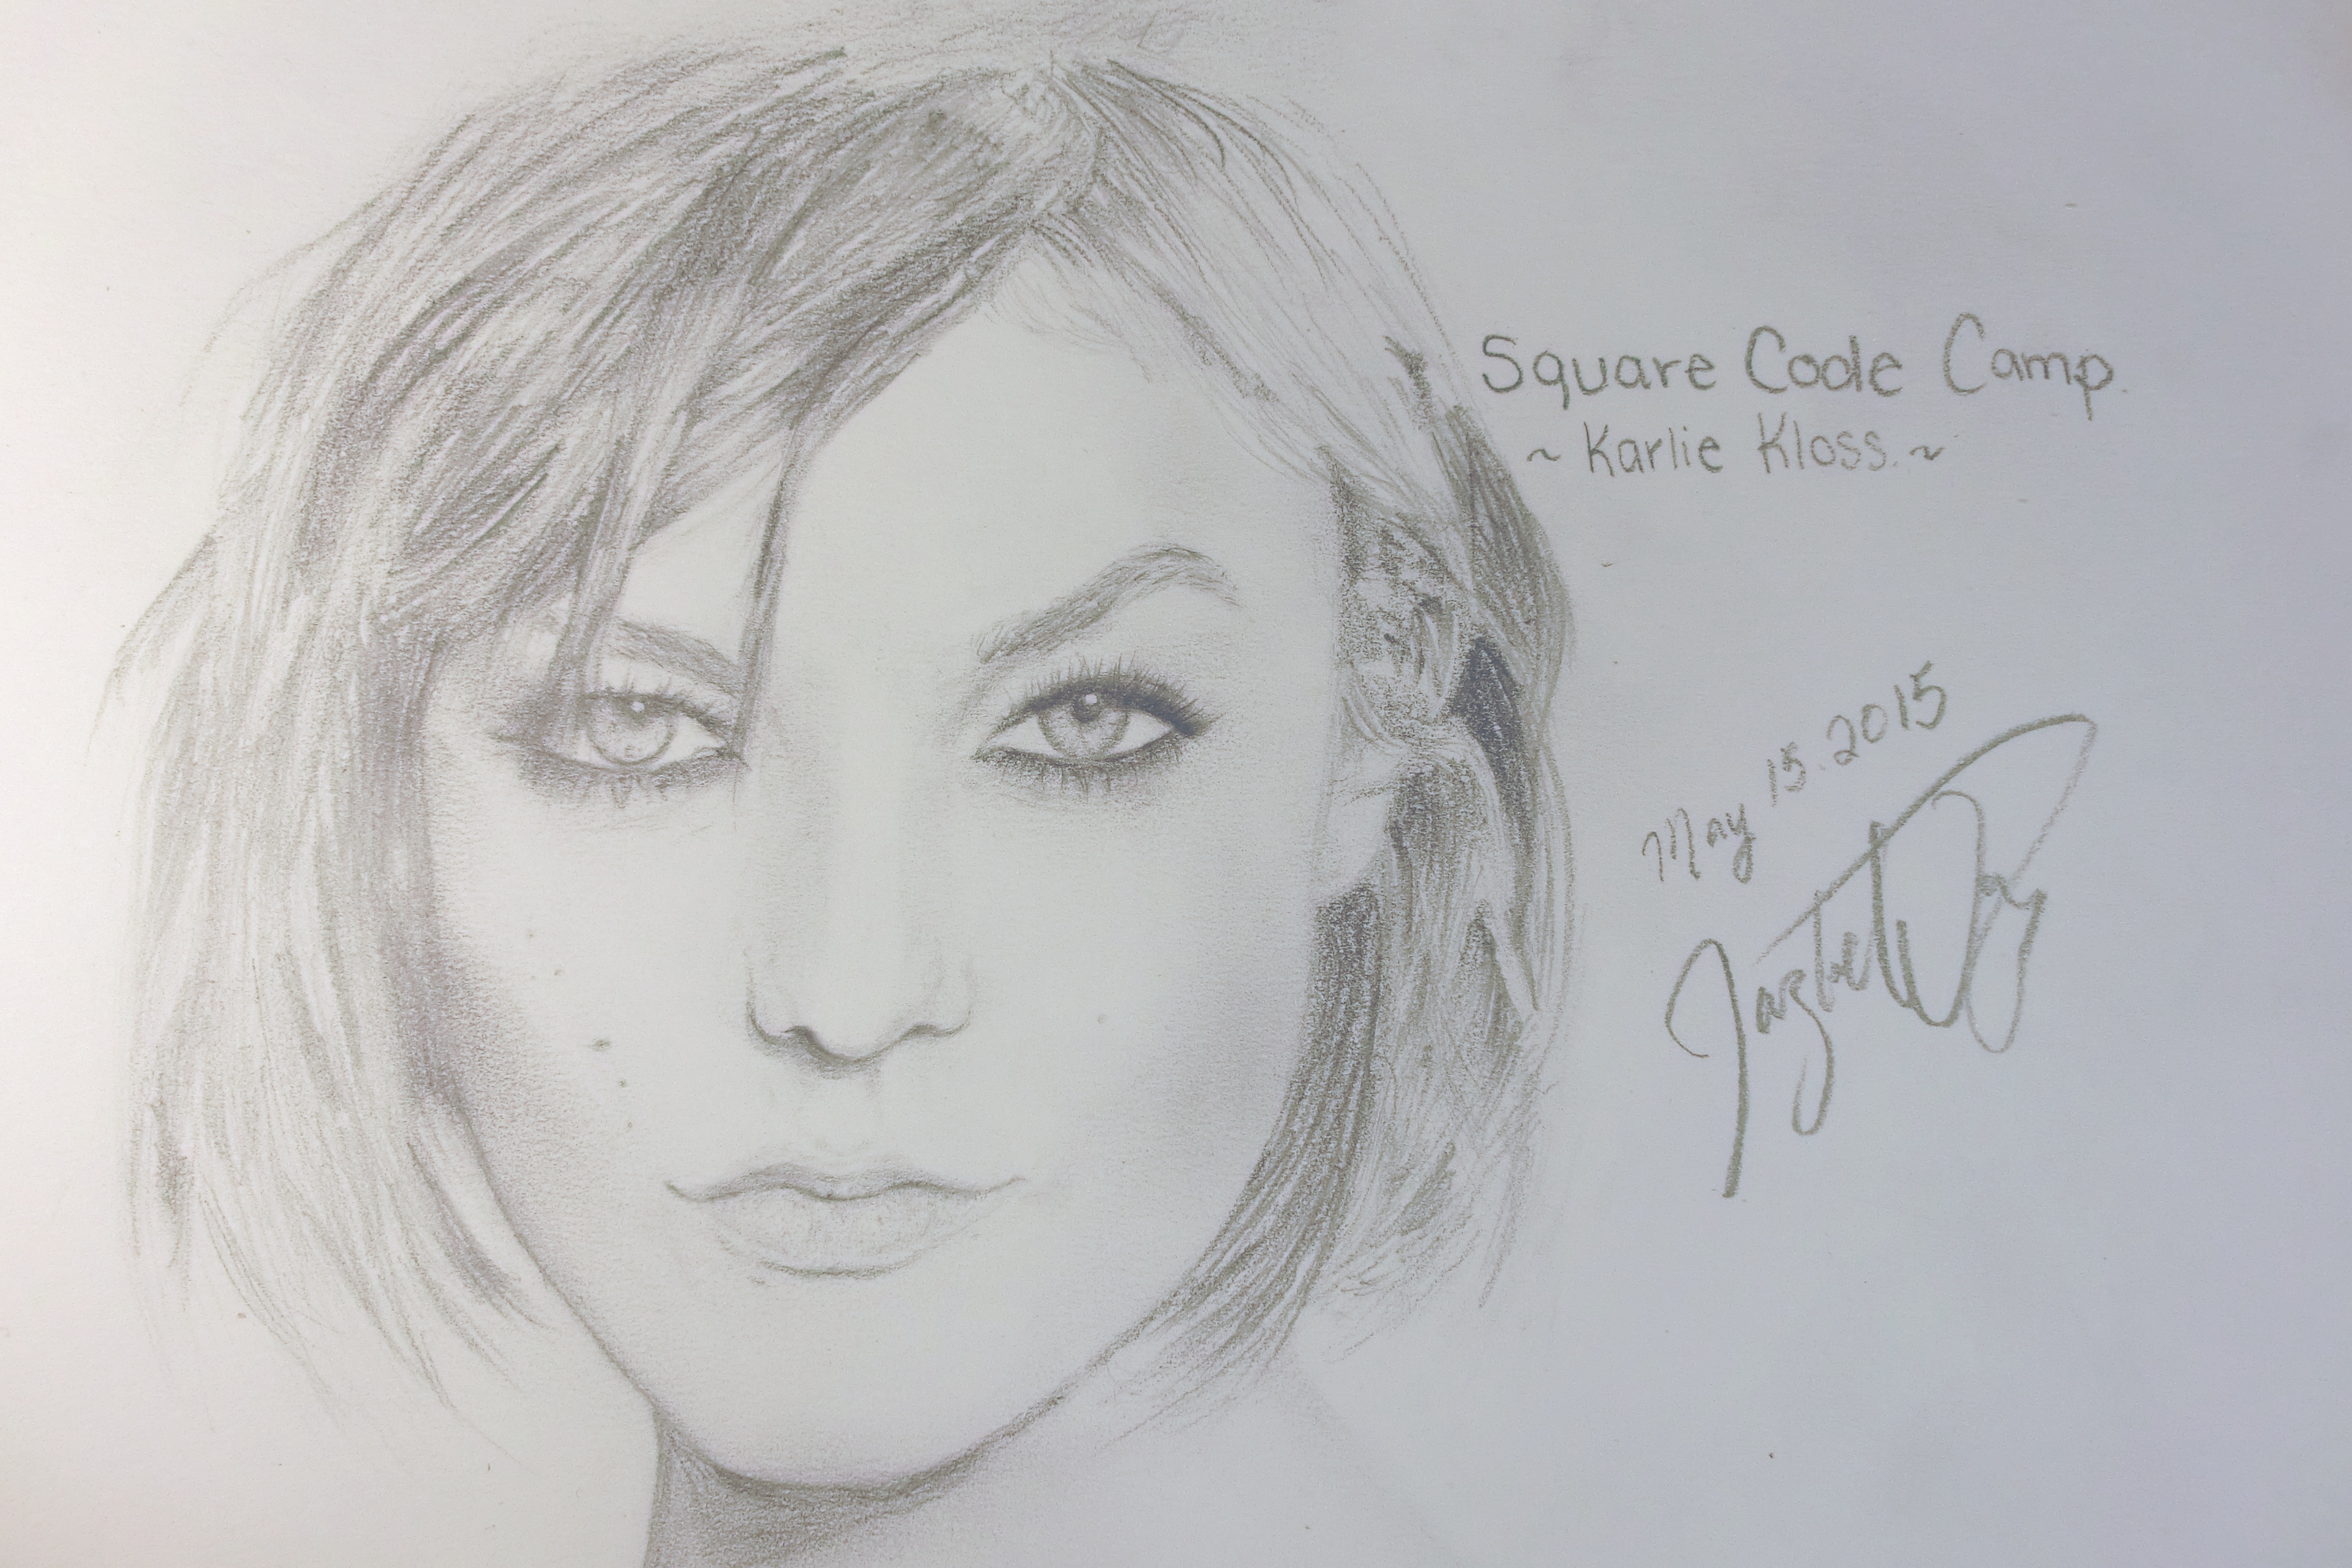 Square Code Camp.
~ Karlie Kloss. ~
May 15. 2015